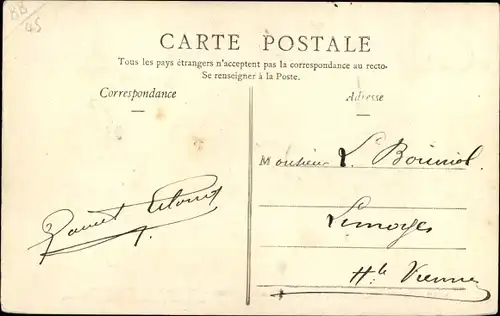 BB
45
CARTE POSTALE
Tous les pays étrangers n'acceptent pas la correspondance au recto.
Se renseigner à la Poste.
Correspondance
Adresse
Monsieur L.
Limoges
Hte Vienne